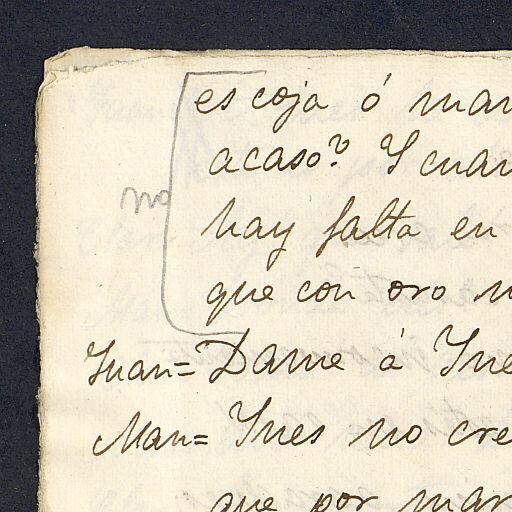 escoja ó man
acaso? Y cuan
no
hay falta en
que con oro
Juan= Dame á Ine
Man= Ynes no cre
que por mar